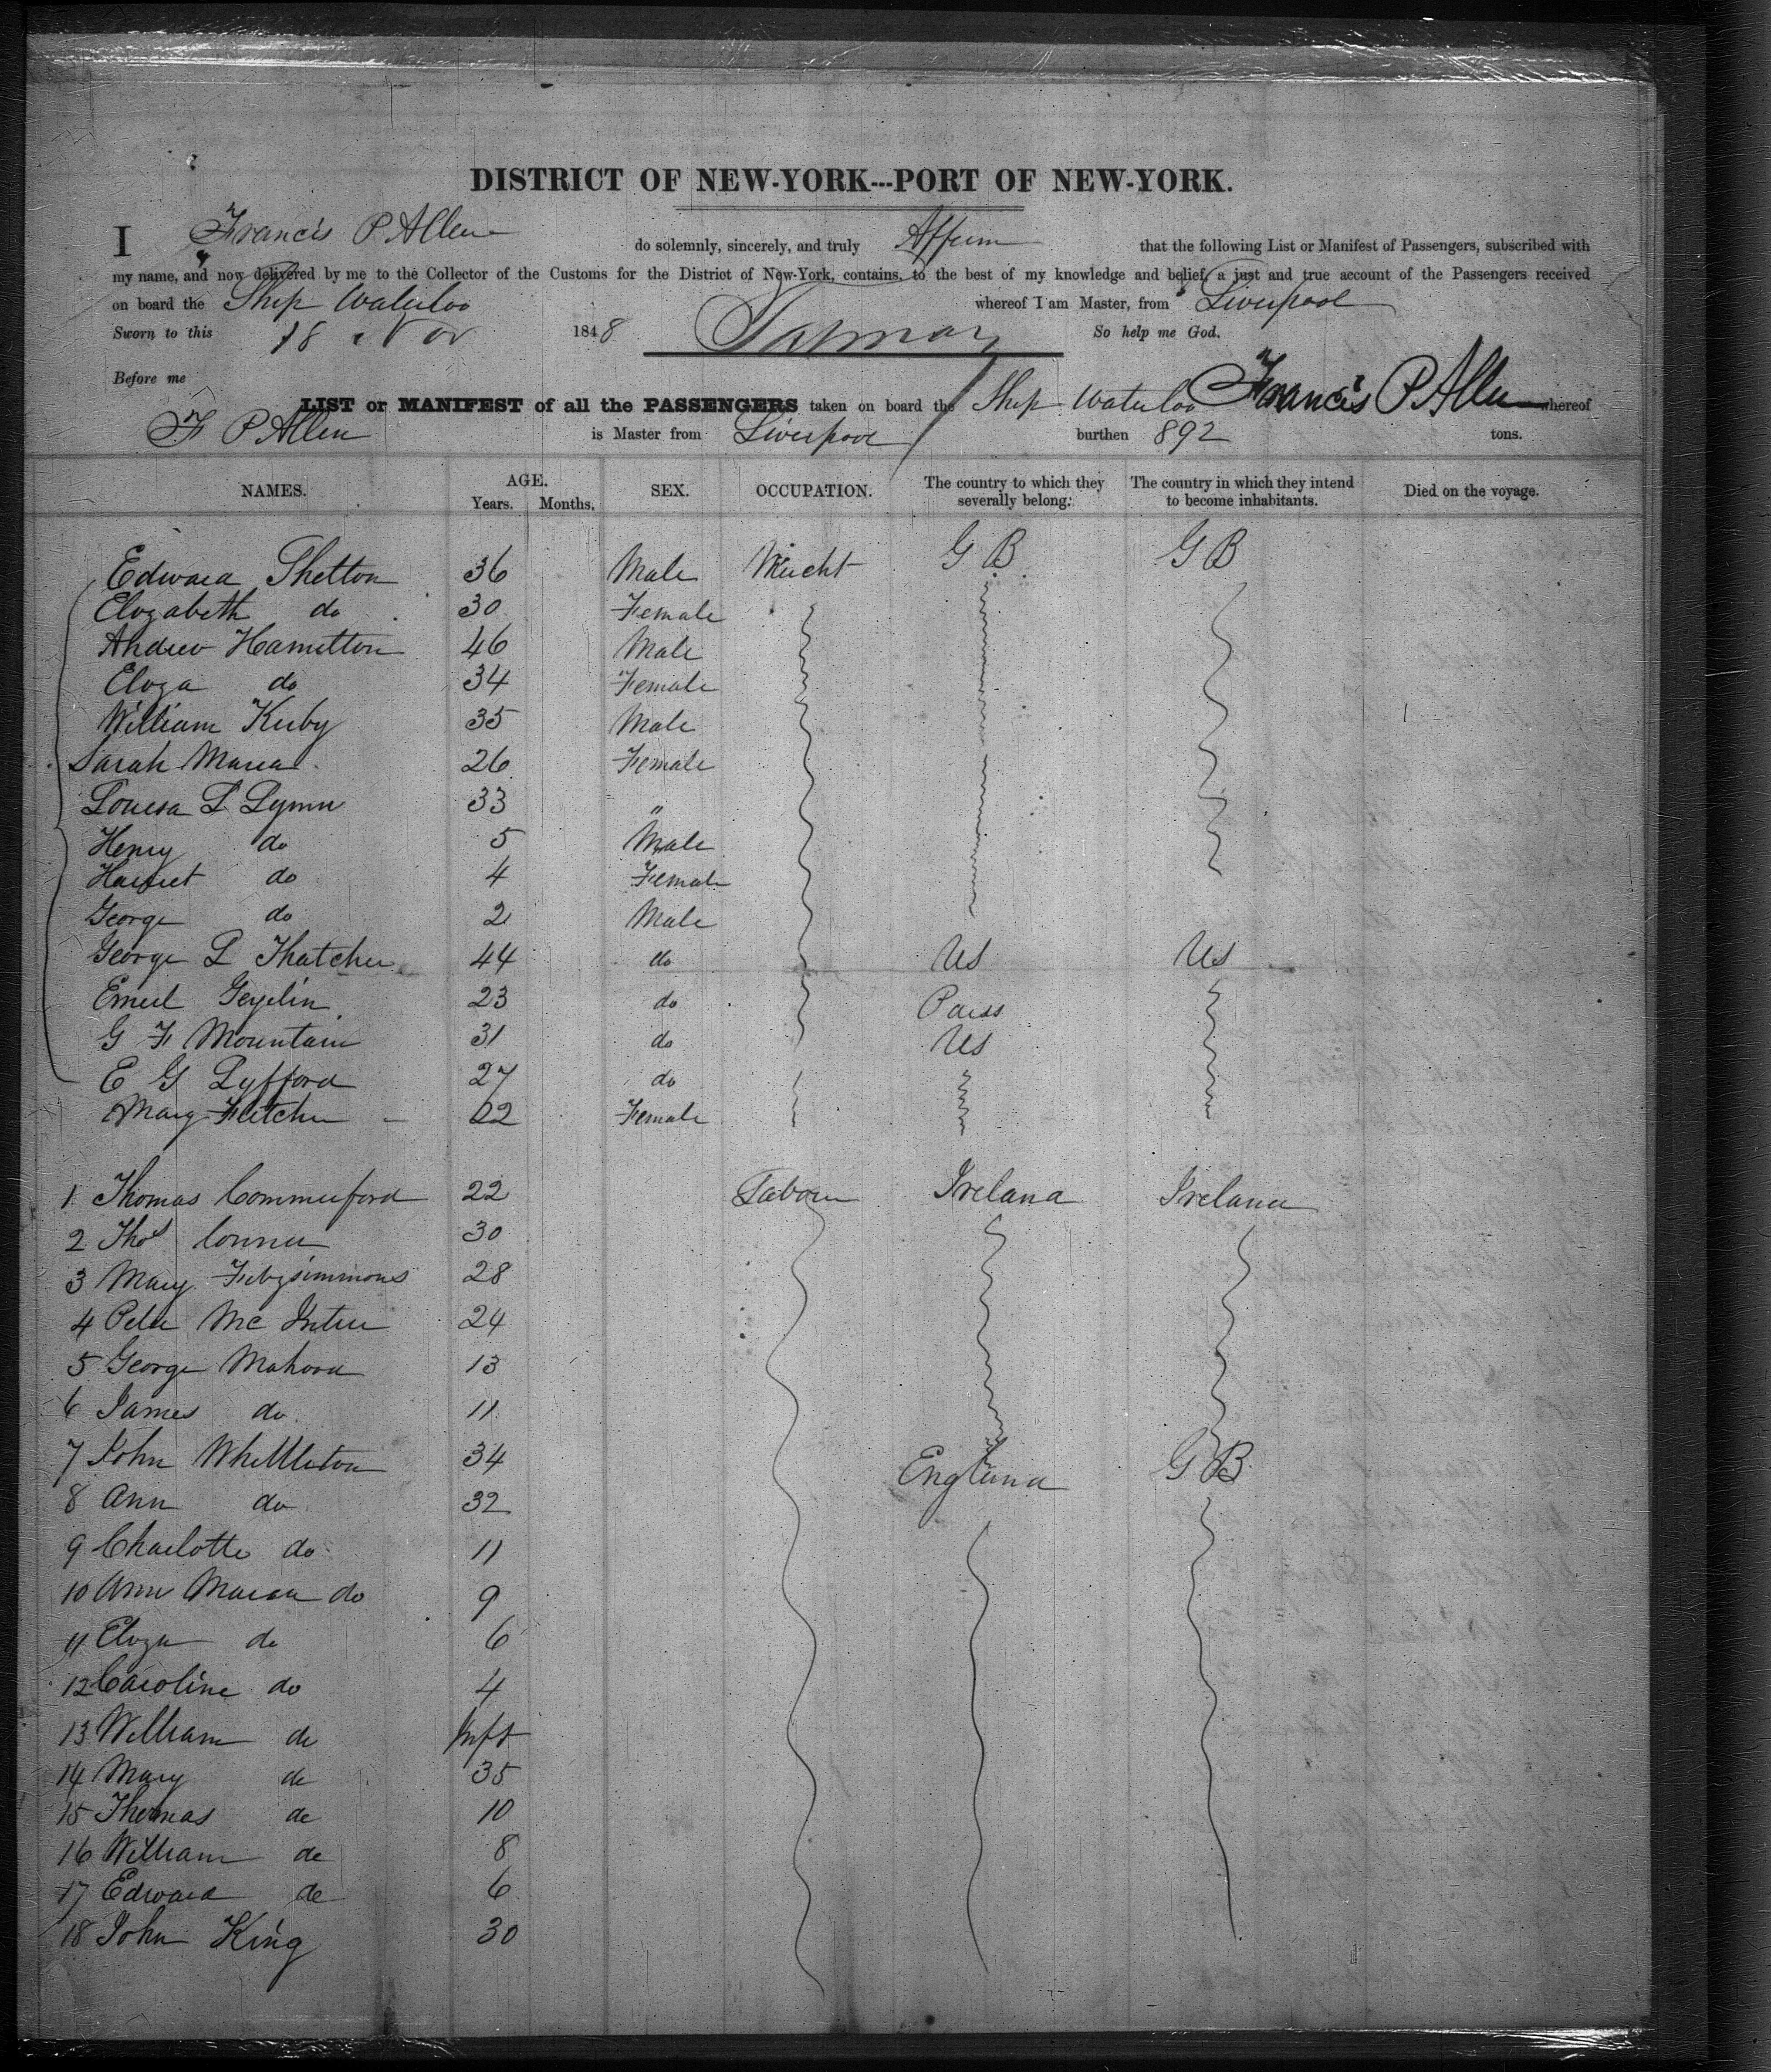 DISTRICT OF NEW-YORK---PORT OF NEW-YORK.
I Francis P Allen do solemnly, sincerely, and truly Affirm that the following List or Manifest of Passengers, subscribed with
my name, and now delivered by me to the Collector of the Customs for the District of New-York, contains, to the best of my knowledge and belief, a just and true account of the Passengers received
on board the Ship Waterloo whereof I am Master, from Liverpool
Sworn to this 18 Nov 1848 So help me God.
Before me Francis P Allen
LIST or MANIFEST of all the PASSENGERS taken on board the Ship Waterloo whereof
F P Allen is Master from Liverpool burthen 892 tons.
NAMES. AGE. Years. Months. SEX. OCCUPATION. The country to which they severally belong. The country in which they intend to become inhabitants. Died on the voyage.
Edward Shelton 36 Male Mercht G B G B
Elizabeth do 30 Female
Andrew Hamilton 46 Male
Eliza do 34 Female
William Kirby 35 Male
Sarah Maria 26 Female
Louisa L Lynn 33 "
Henry do 5 Male
Harriet do 4 Female
George do 2 Male
George L Thatcher 44 do US US
Emeil Geyelin 23 do Pairs
G F Mountain 31 do US
E G Lyfford 27 do
Mary Fletcher 22 Female
1 Thomas Commerford 22 Labour Ireland Ireland
2 Thos Conner 30
3 Mary Fitzsimmons 28
4 Peter Mc Intire 24
5 George Mahood 13
6 James do 11
7 John Whettleton 34 England G B
8 Ann do 32
9 Charlotte do 11
10 Ann Maria do 9
11 Eliza do 6
12 Caroline do 4
13 William do Inft
14 Mary do 35
15 Thomas do 10
16 William do 8
17 Edward do 6
18 John King 30